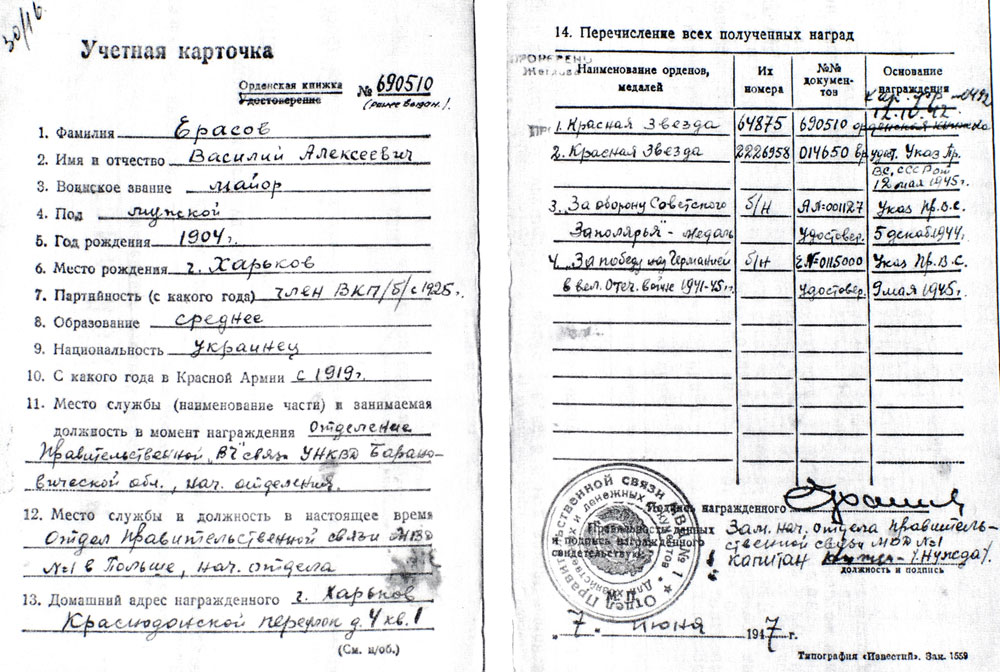 30/16.
Учетная карточка
Орденская книжка
Удостоверение
№ 690510
(ранее выдан.)
1. Фамилия Ерасов
2. Имя и отчество Василий Алексеевич
3. Воинское звание майор
4. Пол мужской
5. Год рождения 1904 г.
6. Место рождения г. Харьков
7. Партийность (с какого года) член ВКП/б/ с 1925 г.
8. Образование среднее
9. Национальность украинец
10. С какого года в Красной Армии с 1919 г.
11. Место службы (наименование части) и занимаемая
должность в момент награждения Отделение
Правительственной „ВЧ" связи УНКВД Барано-
вической обл., нач. отделения.
12. Место службы и должность в настоящее время
Отдел Правительственной связи МВД
№1 в Польше, нач. отдела
13. Домашний адрес награжденного г. Харьков
Краснодонской переулок д. 4 кв. 1
(См. н/об.)
14. Перечисление всех полученных наград
ПРОВЕРЕНО
Наименование орденов, медалей
Их номера
№№ докумен-тов
Основание награждения
12.10.42.
1. Красная Звезда 64875 690510 орденская книжка
2. Красная Звезда 2226958 014650 вр. удост. Указ Пр.
ВС. СССР от
12 мая 1945 г.
3. „За оборону Советского б/н АЛ=001127 Указ Пр. В.С.
Заполярья" - медаль Удостовер. 5 декаб 1944 г.
4. „За победу над Германией б/н Е №0115000 Указ Пр. В.С.
в вел. Отеч. войне 1941-45 г. Удостовер. 9 мая 1945 г.
Подпись награжденного
Правильность данных
и подпись награжденного
свидетельствую:
Зам. нач. отдела правитель-
ственной связи МВД №1
капитан /Нужда/.
должность и подпись
Отдел Правительственной связи МВД № 1
Для хозяйственных и денежных документов
М. П.
„ 7 " июня 1947 г.
Типография «Известий». Зак. 1559